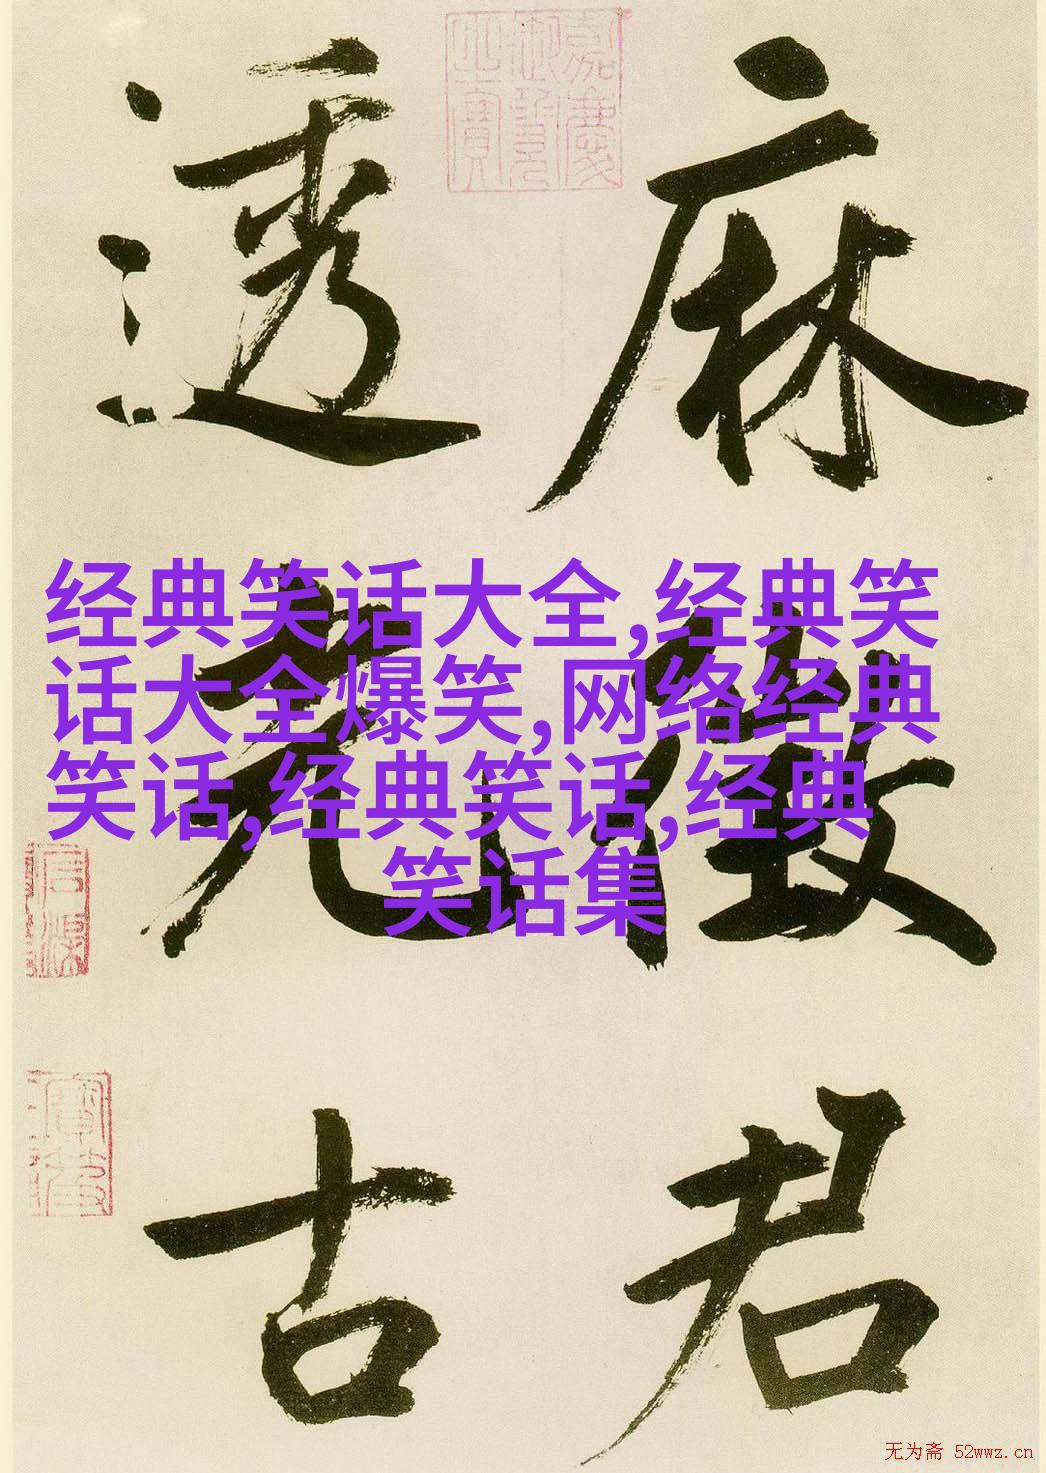 嘉慶
御覽
之寶
麻徵君
透光古
经典笑话大全,经典笑
话大全爆笑,网络经典
笑话,经典笑话,经典
笑话集
无为斋 52wwz.cn